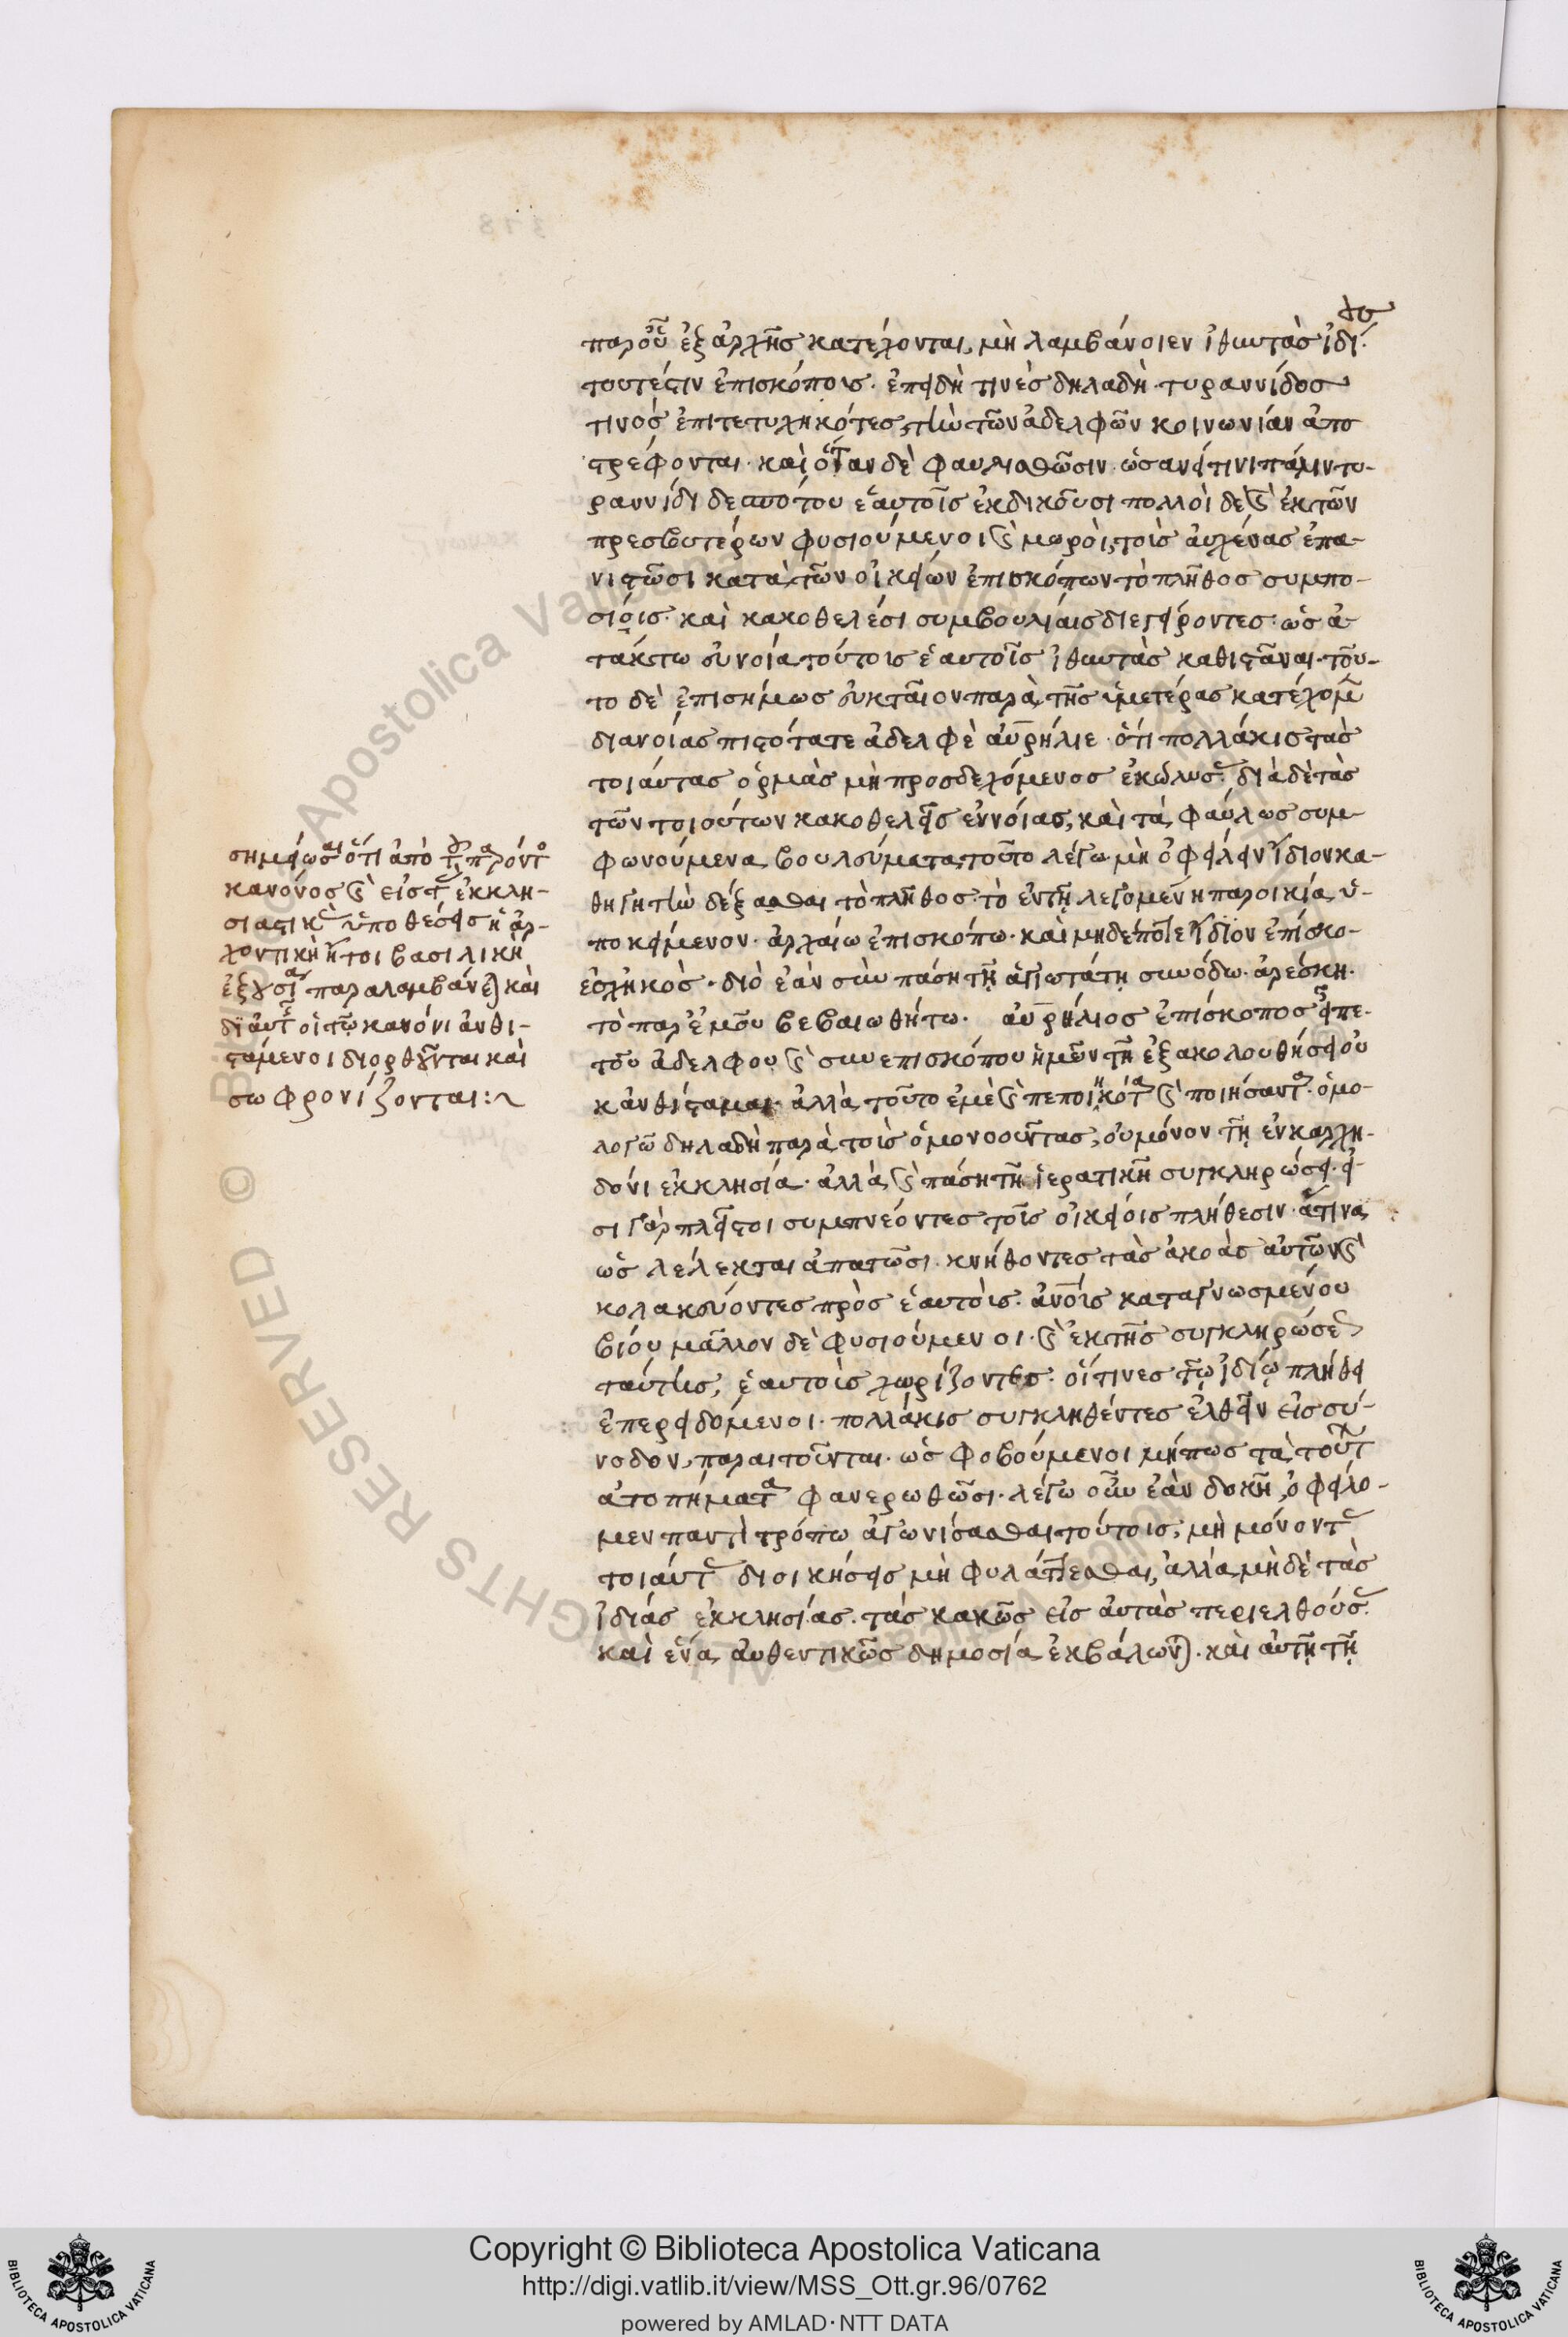 παροῦ ἐξἀρχῆς κατέχονται, μὴ λαμβάνοιεν ἰθυντὰς ἰδί
τουτέστιν ἐπισκόποις. ἐπειδὴ τινὲς δηλαδὴ τυραννίδος
τινὸς ἐπιτετυχηκότες, τὴν τῶν ἀδελφῶν κοινωνίαν ἀπο
στρέφονται. καὶ ὅταν δὲ φαυλισθῶσιν. ὡσανεί τινι πάλιν τυ-
ραννίδι δεσπότου ἑαυτοῖς ἐκδικοῦσι πολλοὶ δὲ καὶ ἐκ τῶν
πρεσβυτέρων φυσιούμενοι καὶ μωροί, τοῖς αὐχένας ἐπα-
νιστῶσι κατὰ τῶν οἰκείων ἐπισκόπων τὸ πλῆθος συμπο-
σίοις. καὶ κακοθελέσι συμβουλίαις διεγείροντες. ὡς ἀ
τάκτω εὐνοία τούτοις ἑαυτοῖς ἰθυντὰς καθιστᾶναι. τοῦ-
το δὲ ἐπισήμως εὐκταῖον παρὰ τῆς ἡμετέρας κατέχομεν
διανοίας πιστότατε ἀδελφὲ αὐρήλιε. ὅτι πολλάκις τὰς
τοιαύτας ὁρμὰς μὴ προσδεχόμενος ἐκώλυσας. διὰ δὲ τὰς
τῶν τοιούτων κακοθελεῖς ἐννοίας, καὶ τὰ φαύλως συμ-
φωνούμενα βουλεύματα, τοῦτο λέγω μὴ ὀφείλειν ἴδιον κα-
θηγητὴν δέξασθαι τὸ πλῆθος. τὸ ἐν τῆ λεγομένη παροικία ὑ-
ποκείμενον. ἀρχαίω ἐπισκόπω. καὶ μηδέποτε ἴδιον ἐπίσκο-
ἐσχηκός. διὸ ἐὰν σὺν πάση τῆ ἁγιωτάτη συνόδω. ἀρέσκη.
τὸ παρ' ἐμοῦ βεβαιωθήτω. αὐρήλιος ἐπίσκοπος εἶπε.
τοῦ ἀδελφοῦ καὶ συνεπισκόπου ἡμῶν τῆ ἐξακολουθήσει οὐ
κἀνθίσταμαι. ἀλλὰ τοῦτο ἐμὲ καὶ πεποιηκότα καὶ ποιήσαντα. ὁμο-
λογῶ δηλαδὴ παρὰ τοῖς ὁμονοοῦντας, οὐ μόνον τῆ ἐν καρχη-
δόνι ἐκκλησία. ἀλλὰ καὶ πάση τῆ ἱερατικῆ συγκληρώσει. εἰ-
σὶ γὰρ πλεῖστοι συμπνέοντες τοῖς οἰκείοις πλήθεσιν. ἅτινα
ὡς λέλεκται ἀπατῶσι. κνήθοντες τὰς ἀκοὰς αὐτῶν καὶ
κολακεύοντες πρὸς ἑαυτοῖς. ἀνοῖς καταγνωσμένου
βίου μᾶλλον δὲ φυσιούμενοι. καὶ ἐκ τῆς συγκληρώσεως
ταύτης, ἑαυτοῖς χωρίζοντες. οἵτινες τῷ ἰδίῳ πλήθει
ἐπερειδόμενοι. πολλάκις συγκληθέντες ἐλθεῖν εἰς σύ-
νοδον, παραιτοῦνται. ὡς φοβούμενοι μήπως τὰ τούτων
ἀτοπήματα φανερωθῶσι. λέγω οὖν ἐὰν δοκῆ, ὀφείλο-
μεν παντὶ τρόπω ἀγωνίσασθαι τούτοις, μὴ μόνον τὰς
τοιαύτας διοικήσεις μὴ φυλάττεσθαι, ἀλλὰ μὴ δὲ τὰς
ἰδιάς ἐκκλησίας. τὰς κακῶς εἰς αὐτὰς περιελθούσας.
καὶ ἕνα αὐθεντικῶς δημοσία ἐκβάλωνται. καὶ αὐτῆ τῆ
σημείωσαι ὅτι ἀπὸ τοῦ παρόντο
κανόνος καὶ εἰς τὰς ἐκκλη-
σιαστικὰς ὑποθέσεις ἡ ἀρ-
χοντικὴ ἤτοι βασιλικὴ
ἐξουσία παραλαμβάνεται καὶ
δι αὐτῆς οἱ τῷ κανόνι ἀνθι-
στάμενοι διορθοῦνται καὶ
σωφρονίζονται:~
Copyright © Biblioteca Apostolica Vaticana
http://digi.vatlib.it/view/MSS_Ott.gr.96/0762
powered by AMLAD·NTT DATA
BIBLIOTECA APOSTOLICA VATICANA
BIBLIOTECA APOSTOLICA VATICANA